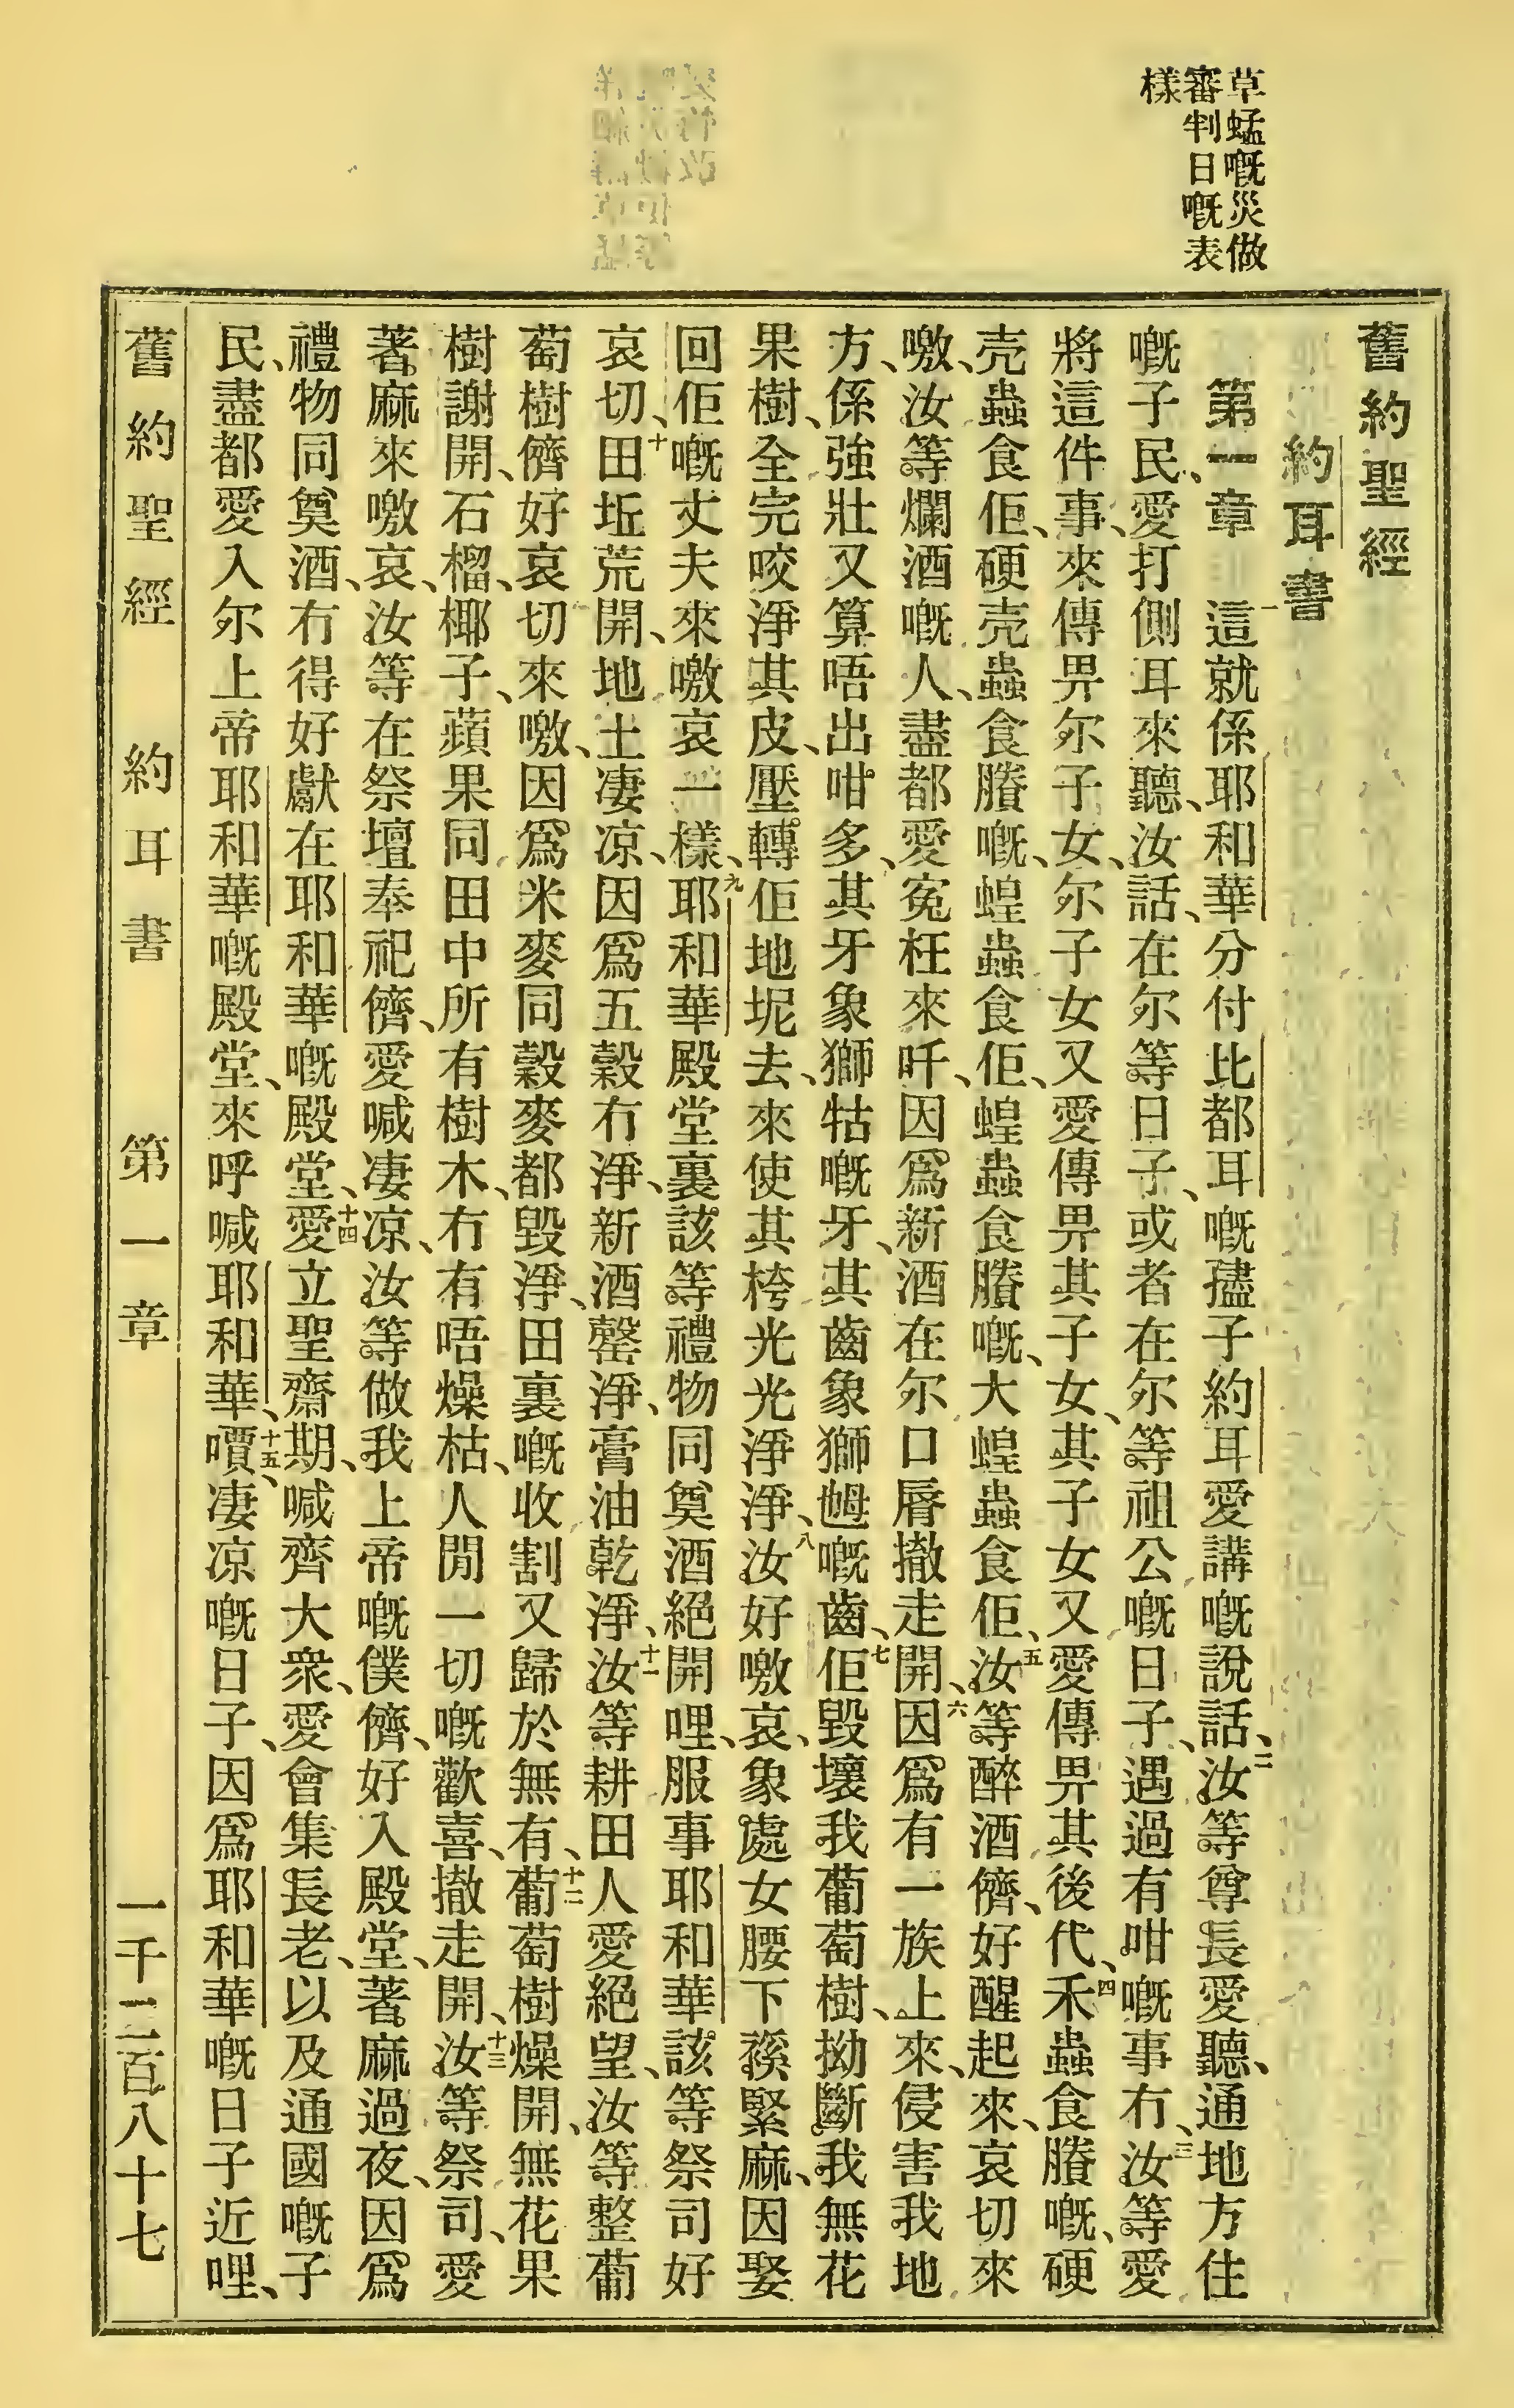 草蜢嘅災做
審判日嘅表
樣
舊約聖經
約耳書
第一章 一這就係耶和華分付比都耳嘅孻子約耳愛講嘅說話、二汝等尊長愛聽、通地方住
嘅子民、愛打側耳來聽、汝話、在尔等日子、或者在尔等祖公嘅日子、遇過有咁嘅事冇、三汝等愛
將這件事、來傳畀尔子女、尔子女又愛傳畀其子女、其子女又愛傳畀其後代、四禾蟲食賸嘅、硬
壳蟲食佢、硬壳蟲食賸嘅、蝗蟲食佢、蝗蟲食賸嘅、大蝗蟲食佢、五汝等醉酒儕、好醒起來、哀切來
噭、汝等爛酒嘅人、盡都愛寃枉來吀、因爲新酒在尔口脣撤走開、六因爲有一族上來、侵害我地
方、係強壯又算唔出咁多、其牙象獅牯嘅牙、其齒象獅乸嘅齒、七佢毀壞我葡萄樹、拗斷我無花
果樹、全完咬淨其皮、壓轉佢地坭去、來使其桍光光淨淨、八汝好噭哀、象處女腰下䙎緊麻、因娶
回佢嘅丈夫來噭哀一樣、九耶和華殿堂裏該等禮物同奠酒絕開哩、服事耶和華該等祭司好
哀切、十田坵荒開、地土凄凉、因爲五穀冇淨、新酒罄淨、膏油乾淨、十一汝等耕田人愛絕望、汝等整葡
萄樹儕好哀切來噭、因爲米麥同穀麥都毀淨、田裏嘅收割又歸於無有、十二葡萄樹燥開、無花果
樹謝開、石榴、椰子、蘋果同田中所有樹木、冇有唔燥枯、人間一切嘅歡喜、撤走開、十三汝等祭司、愛
著麻來噭哀、汝等在祭壇奉祀儕、愛喊凄凉、汝等做我上帝嘅僕儕、好入殿堂、著麻過夜、因爲
禮物同奠酒、冇得好獻在耶和華嘅殿堂、十四愛立聖齋期、喊齊大衆、愛會集長老、以及通國嘅子
民、盡都愛入尔上帝耶和華嘅殿堂、來呼喊耶和華、十五嘳、凄凉嘅日子、因爲耶和華嘅日子近哩、
舊約聖經 約耳書 第一章 一千二百八十七